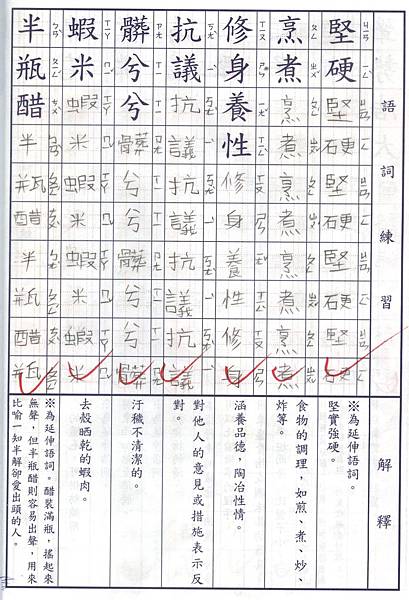 語詞練習
解釋
堅硬
堅硬堅硬堅硬堅硬
※為延伸語詞。
堅實強硬。
烹煮
烹煮烹煮烹煮烹煮
食物的調理，如煎、煮、炒、
炸等。
修身養性
修身養性修身
涵養品德，陶冶性情。
抗議
抗議抗議抗議抗議
對他人的意見或措施表示反
對。
髒兮兮
髒兮兮髒兮兮髒
汙穢不清潔的。
蝦米
蝦米蝦米蝦米蝦米
去殼晒乾的蝦肉。
半瓶醋
半瓶醋半瓶醋瓶
※為延伸語詞。醋裝滿瓶，搖起來
無聲，但半瓶醋則容易出聲，用來
比喻一知半解卻愛出頭的人。